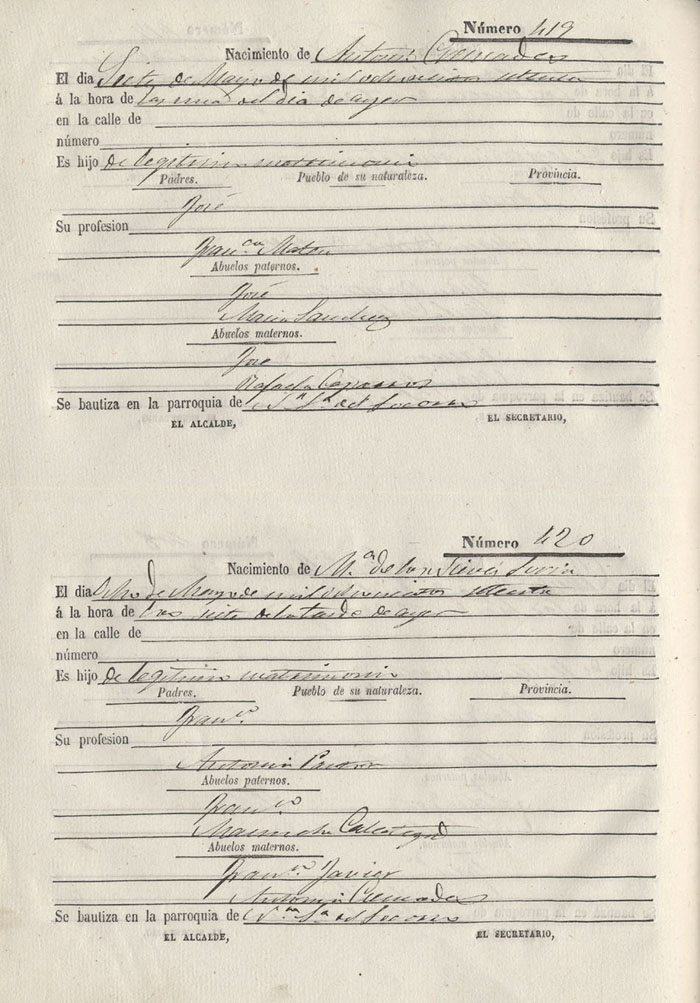 Número 419
Nacimiento de Antonio Cremades
El dia Siete de Mayo de mil ochocientos setenta
á la hora de las una del dia de ayer
en la calle de
número
Es hijo de legitimo matrimonio
Padres. Pueblo de su naturaleza. Provincia.
José
Su profesion
Fran.ca Mateu
Abuelos paternos.
José
Maria Sanchez
Abuelos maternos.
José
Rafaela
Se bautiza en la parroquia de N.ª S.ª del Socorro
EL ALCALDE, EL SECRETARIO,
Número 420
Nacimiento de M.ª de las Nieves Soria
El dia Ocho de Mayo de mil ochocientos setenta
á la hora de las siete de la tarde de ayer
en la calle de
número
Es hijo de legitimo matrimonio
Padres. Pueblo de su naturaleza. Provincia.
Fran.co
Su profesion
Antonia Pastor
Abuelos paternos.
Fran.co
Manuela
Abuelos maternos.
Fran.co Javier
Antonia Cremades
Se bautiza en la parroquia de N.ª S.ª del Socorro
EL ALCALDE, EL SECRETARIO,